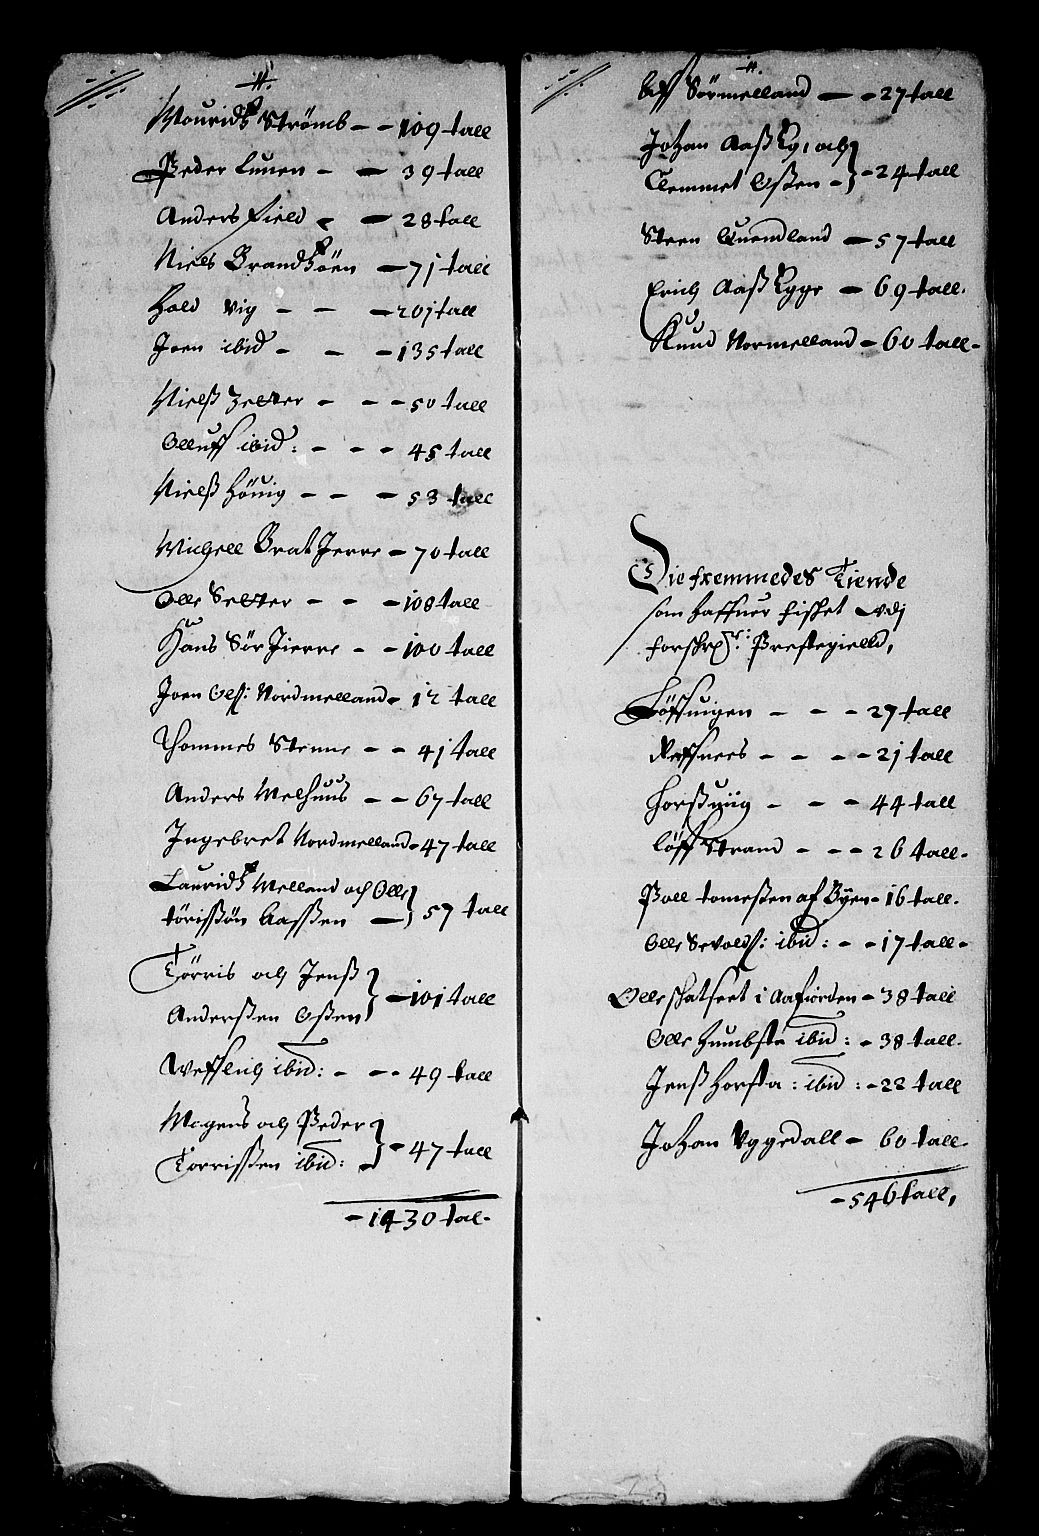 Mouridz Strömb - - 109 tall
Peder Luuen - - 39 tall
Anders Field - - 28 tall
Niels Brandzöen - 71 tall
Hald Vig - - - 201 tall
Joen ibid - - - 135 tall
Nielß Zetter - - - 50 tall
Olluff ibid: - - - 45 tall
Nielß Höuig - - - 53 tall
Michell BratJerre - 70 tall
Olle Setter - - - 108 tall
Hans SörJierre - - 100 tall
Joen Olß: Nordmelland - 12 tall
Thommes Stenne - - 41 tall
Anders Melhuus - - 67 tall
Ingebret Nordmelland - 47 tall
Lauridz Melland och Olle
törißön Aaßen - 57 tall
Törris och Jenß
Anderßen Oßen - 101 tall
Weßling ibid: - - - 49 tall
Mogens och Peder
Torrißen ibid: - 47 tall
- 1430 tal -
Sörmelland - - 27 tall
Johan AaßEg, och
Clemmet Oßen - - 24 tall
Steen Quendland - 57 tall
Erich AaßEgge - 69 tall.
Knud Normelland - 60 tall -
Die fremmedes Tiende
som haffuer fisket udj
forschr: Prestegield,
Löffuigen - - - 27 tall
Reffsnees - - - - 21 tall
Horßuiig - - - 44 tall
Löff Strand - - - 26 tall.
Poll tomeßen af Byen - 16 tall.
Olle Sevoldß: ibid: - - 17 tall -
Olle skatfeet i Aafiorden - 38 tall
Olle Humbsta ibid: - 38 tall.
Jenß Horsta: ibid: - 22 tall
Johan Uggedall - 60 tall -
- 546 tall,